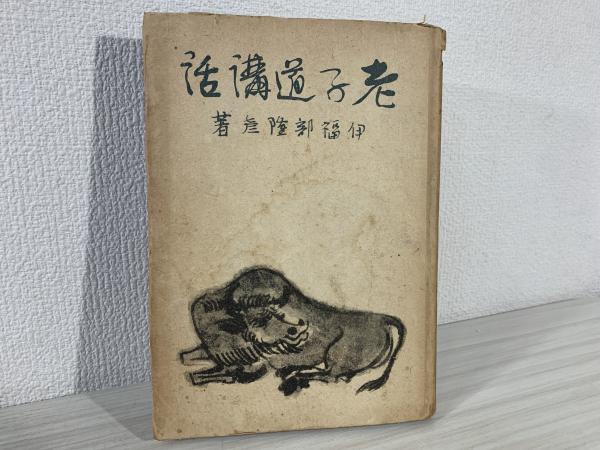 老子道講話
伊福部隆彦著